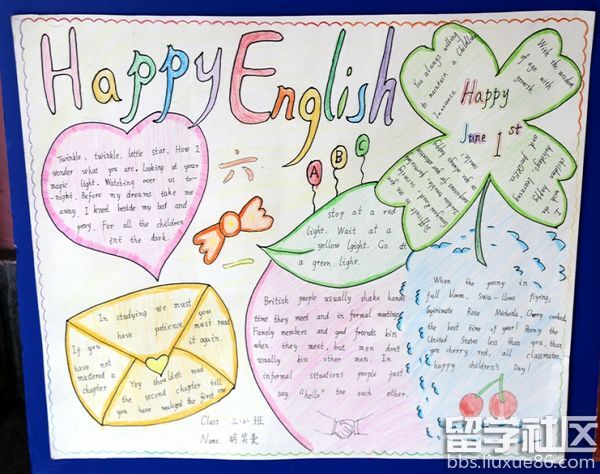 Happy English
Twinkle, twinkle, little star. How I
wonder what you are. Looking at your
magic light. Watching over us to-
night. Before my dreams take me
away, I kneed beside my bed and
pray. For all the children
int the dark.
六
一
A B C
stop at a red
light. Wait at a
yellow lgight. Go at
a green lighe.
You always willing
to maintain a childlike
Innocence
With the wisdom
age with
growth.
Happy
June 1st
In studying we must
have patience, you must read
it again.
If you
have not
mastered a
chapter
Yoy should't read
the second chapter till
you have realized the first one
British people usually shake hands
time they meet and in formal meetings
Famely members and good friends kiss
when they meet, but men don't
usually kiss other men. In
informal sstuations people just
say "hello" toe each other.
When the peony in
full bloom, Swa-llows flying,
legitimate Rose
the best time of year! Peony the
United States less than you, than
you cherry red, all classmates,
happy children's Day!
Class 三.小班
Name 胡笑曼
留学社区
bbs.liuxue86.com